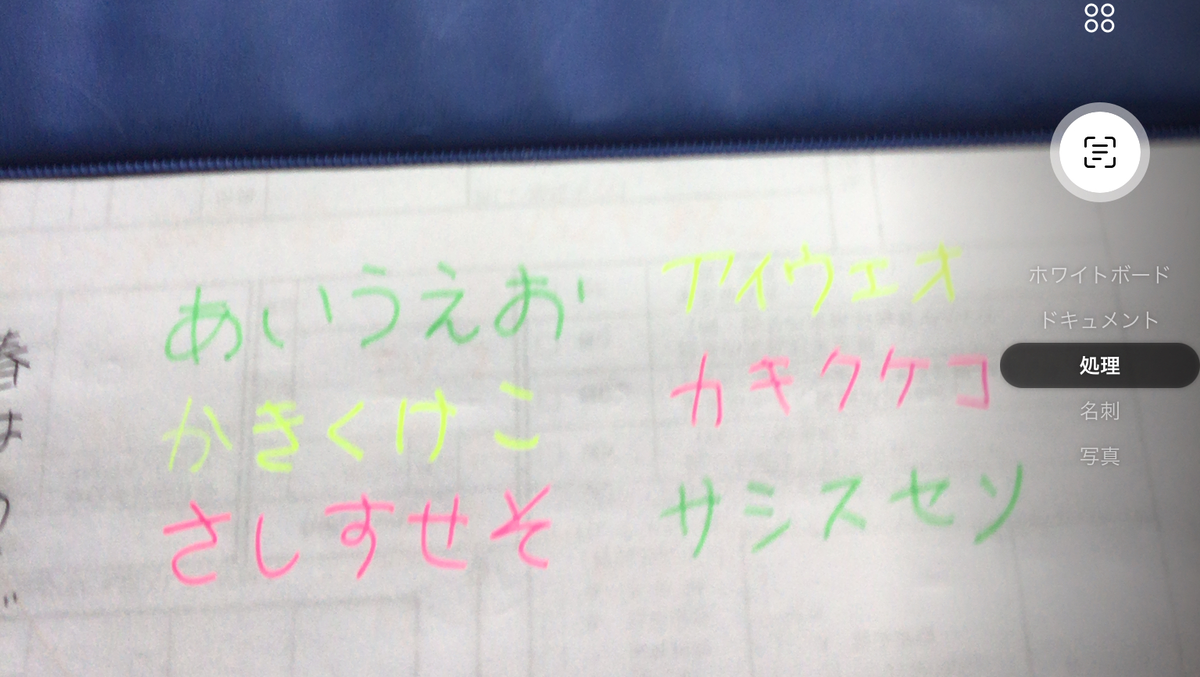 あいうえお
かきくけこ
さしすせそ
アイウエオ
カキクケコ
サシスセソ
春
は
ホワイトボード
ドキュメント
処理
名刺
写真